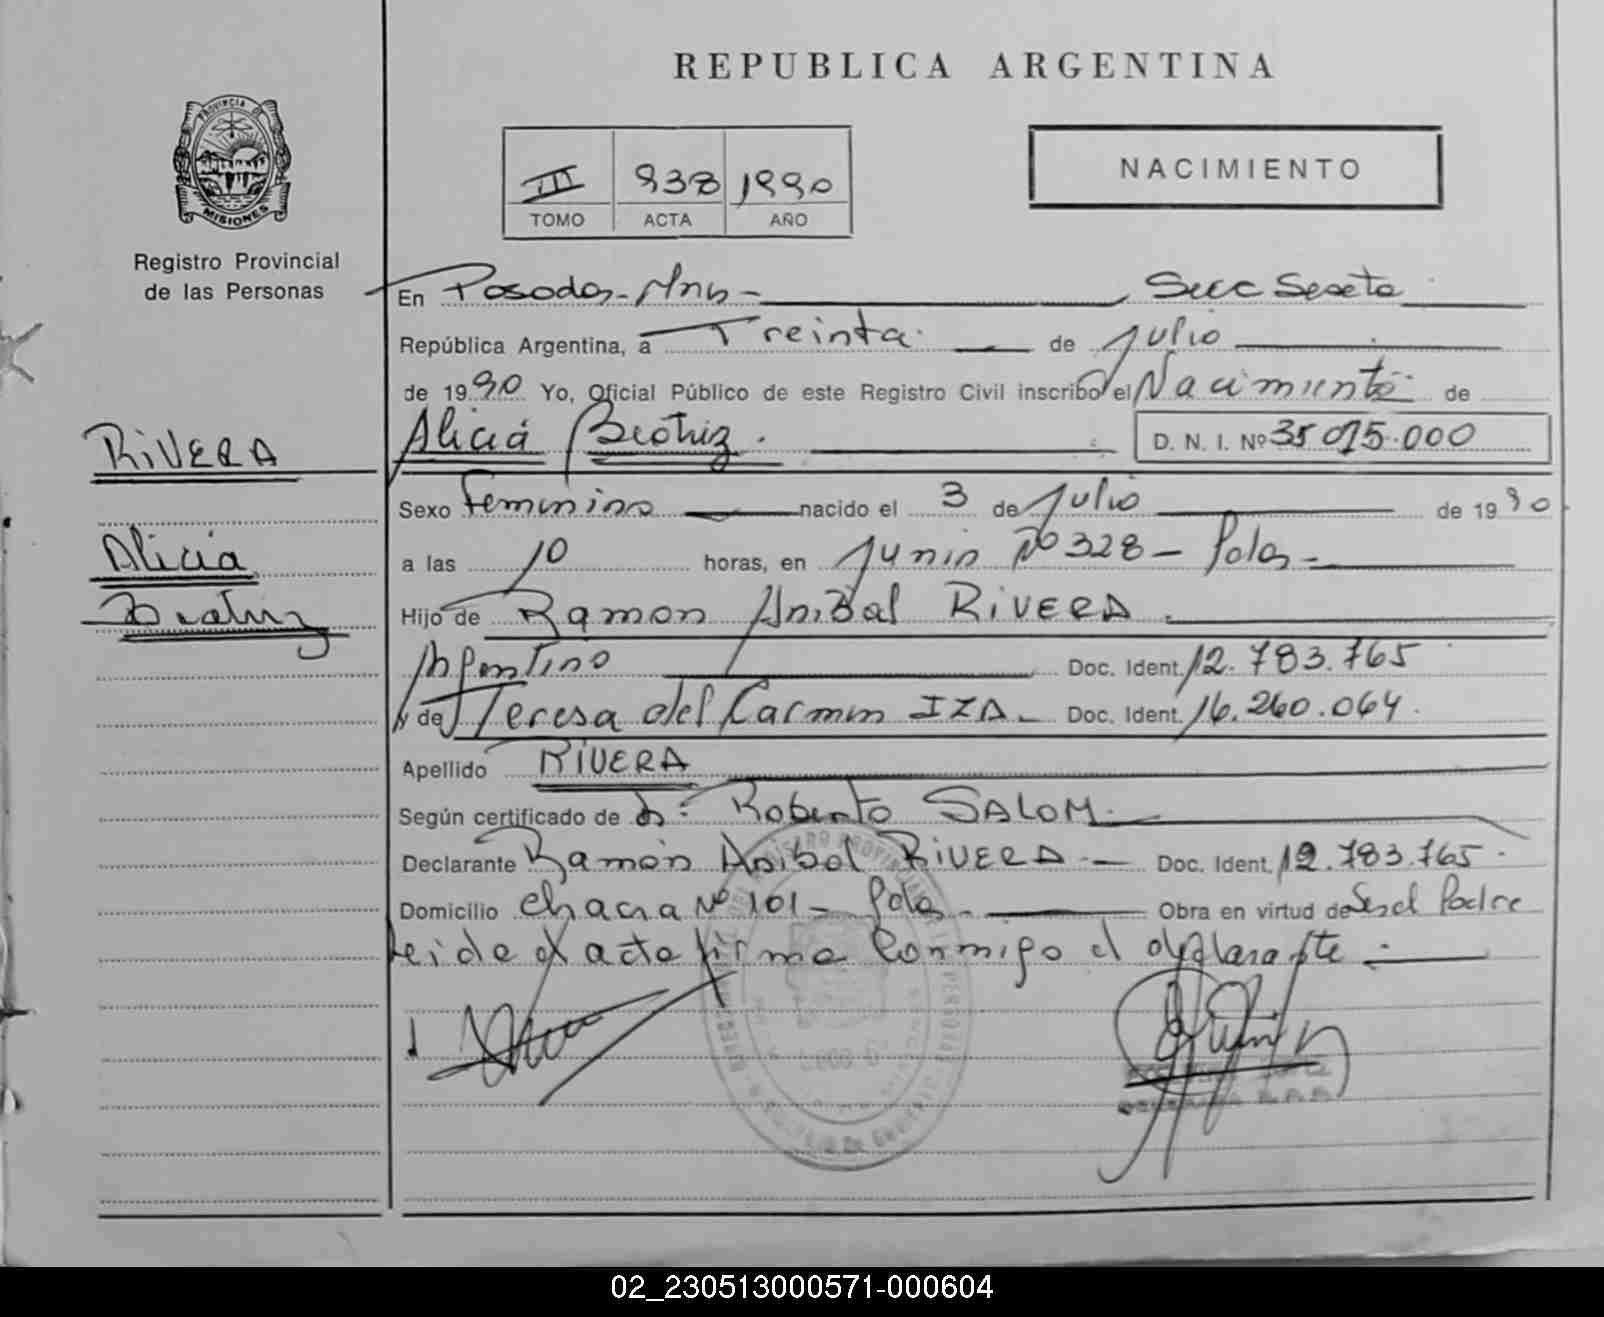 REPUBLICA ARGENTINA
PROVINCIA DE
MISIONES
Registro Provincial
de las Personas
III 938 1990
TOMO ACTA AÑO
NACIMIENTO
En Posadas - Mns - Secc Sexta
República Argentina, a Treinta de Julio
de 1990 Yo, Oficial Público de este Registro Civil inscribo el Nacimiento de
RIVERA
Alicia Beatriz. D. N. I. Nº 35.015.000
Sexo Femenino nacido el 3 de Julio de 1990
Alicia
a las 10 horas, en Junin Nº 328 - Pdas -
Beatriz
Hijo de Ramon Anibal RIVERA
Argentino Doc. Ident. 12.783.765
y de Teresa del Carmen IZA - Doc. Ident. 16.260.064.
Apellido RIVERA
Según certificado de Dr: Roberto SALOM.
Declarante Ramón Anibal RIVERA - Doc. Ident. 12.783.765.
Domicilio Chacra Nº 101 - Pdas - Obra en virtud de Ser el Padre
Leida el acta firma conmigo el declarante.-
02_230513000571-000604